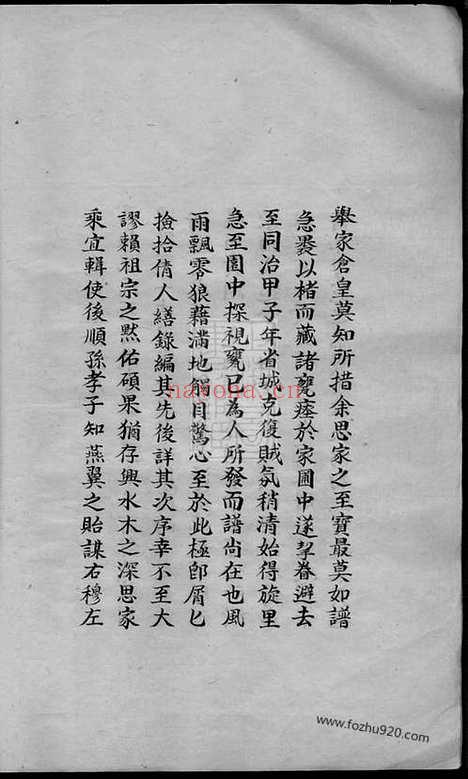 舉家倉皇莫知所措余思家之至寶最莫如譜
急裂以楮而藏諸甕瘞於家園中遂挈眷避去
至同治甲子年省城克復賊氛稍清始得旋里
急至園中探視甕已為人所發而譜尚在也風
雨飄零狼藉滿地觸目驚心至於此極卽屑匕
撿拾倩人繕錄編其先後詳其次序幸不至大
謬賴祖宗之黙佑碩果猶存興水木之深思家
乘宜輯使後順孫孝子知燕翼之貽謀右穆左
nayona.cn
www.fozhu920.com